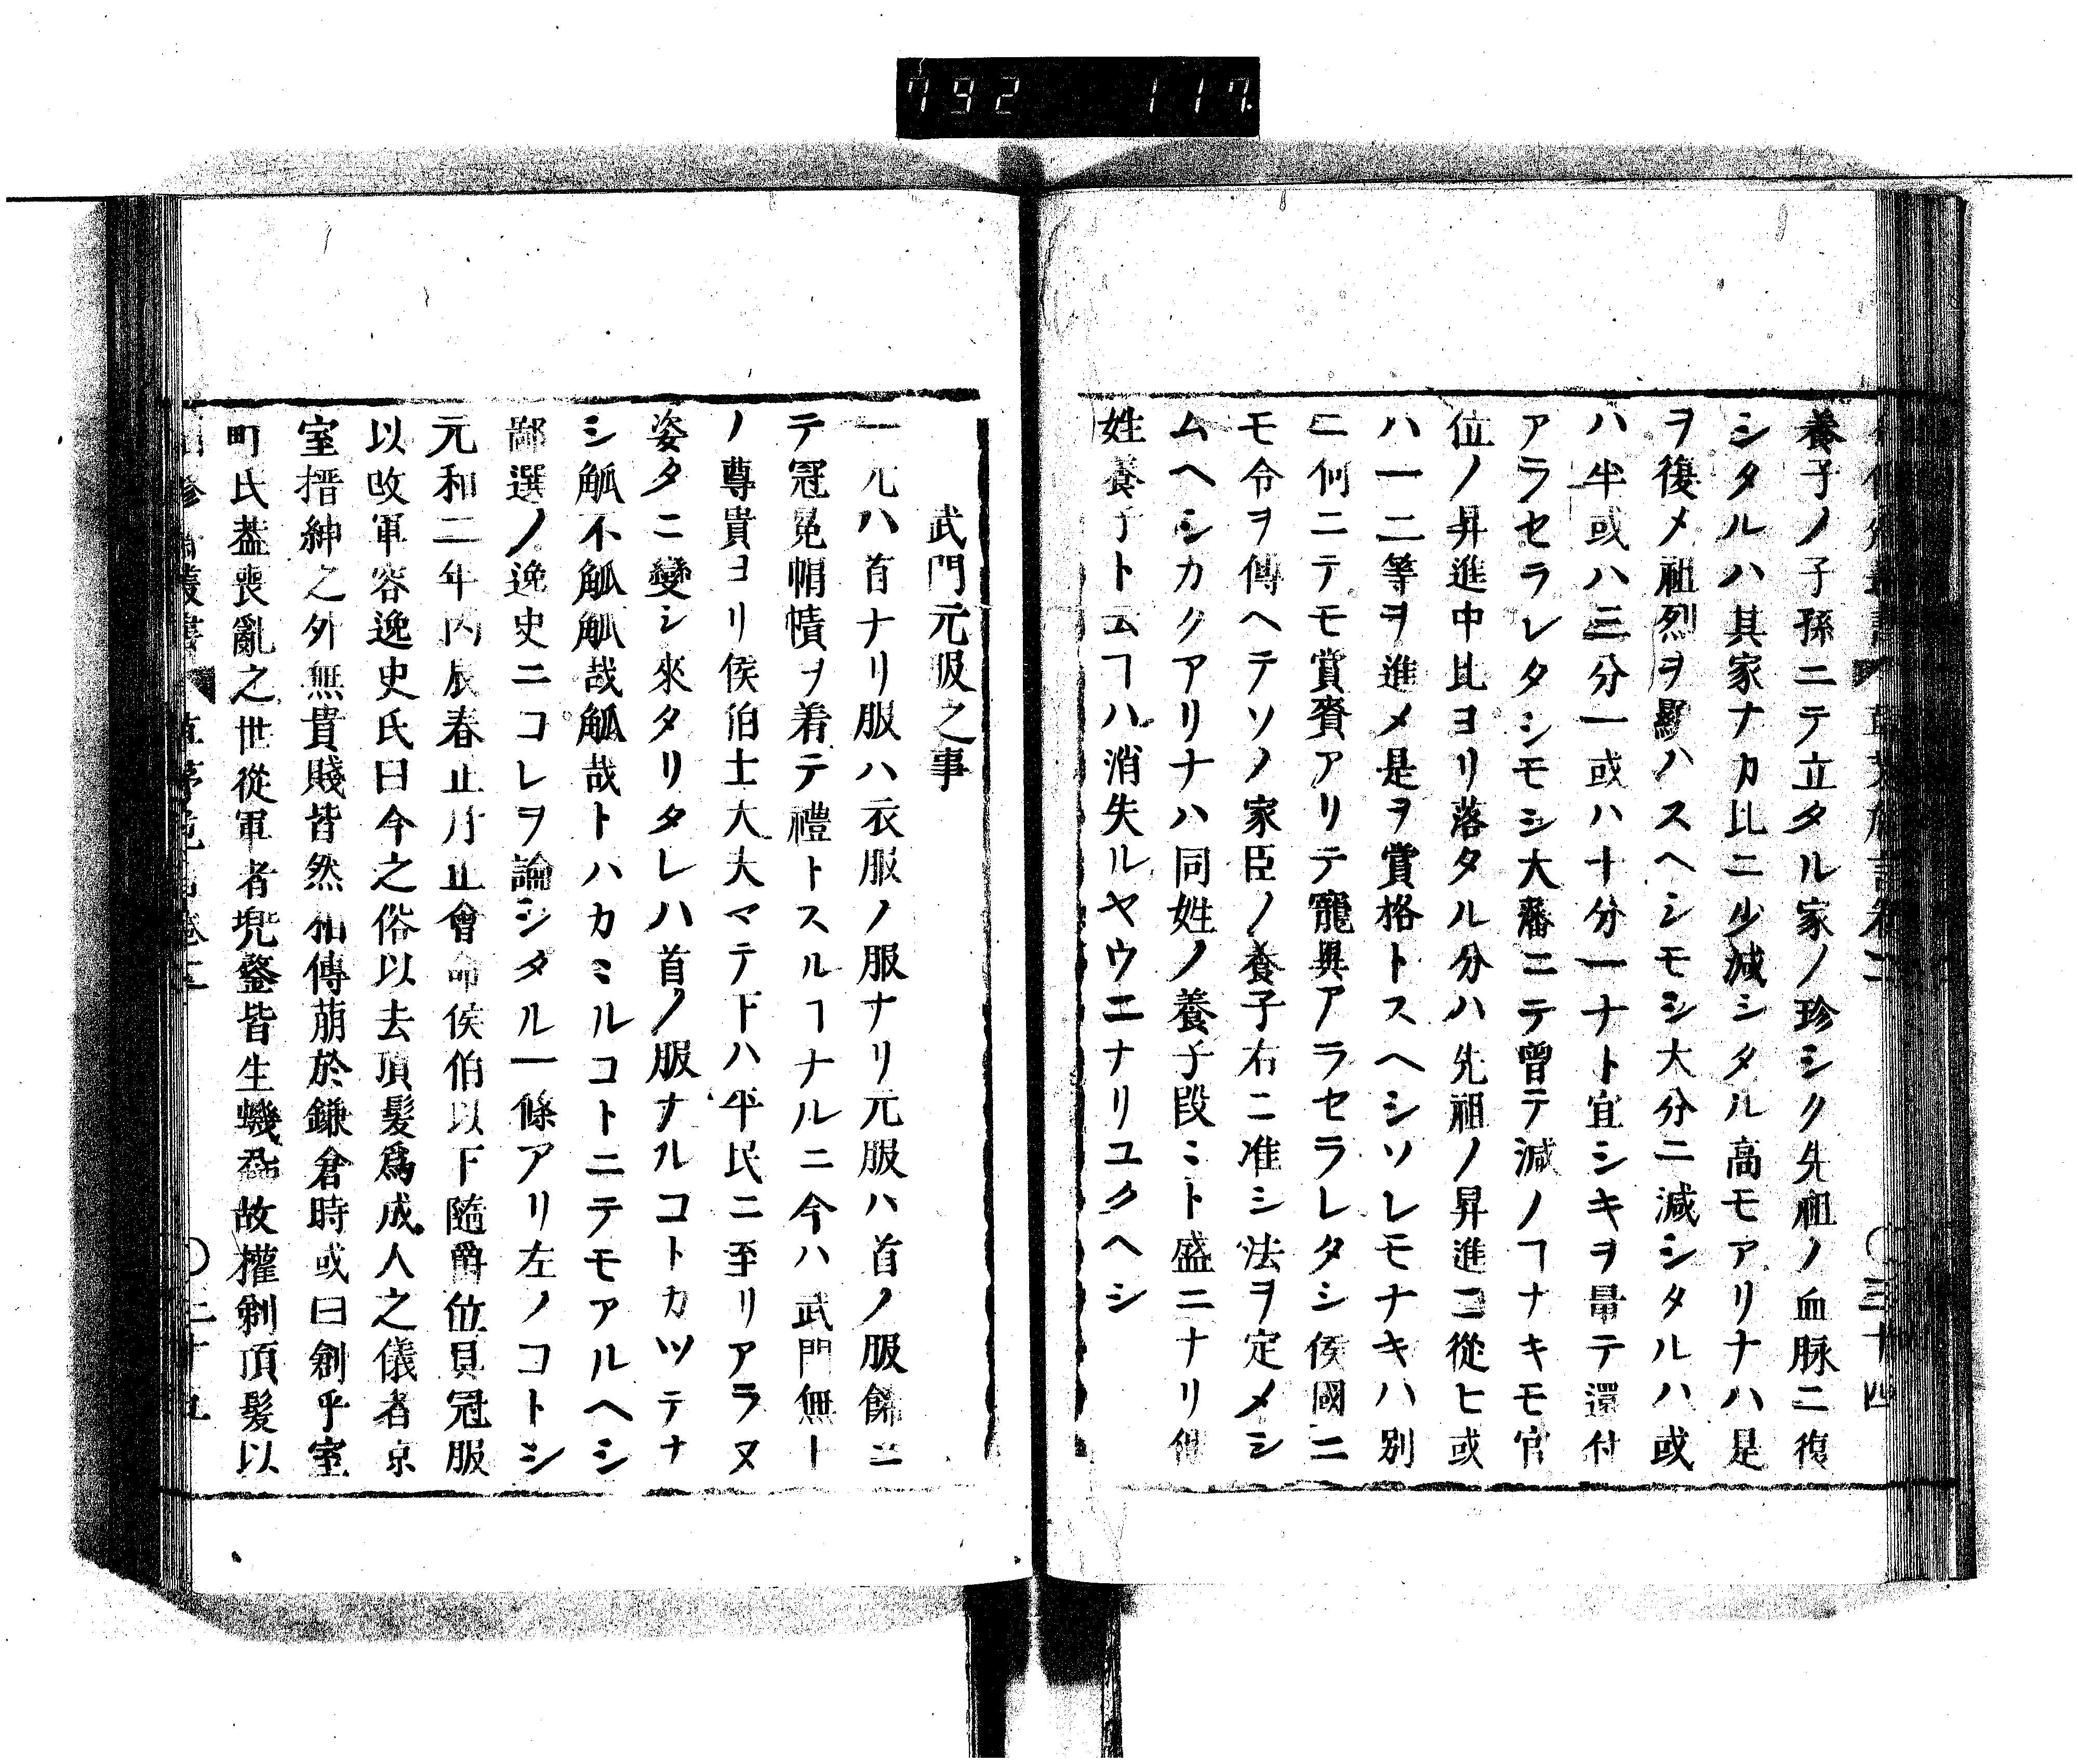 792 117
養子ノ子孫ニテ立タル家ノ珍シク先祖ノ血脉ニ復
シタルハ其家ナカ比ニ少減シタル高モアリナハ是
ヲ復メ祖烈ヲ顯ハスヘシモシ大分ニ減シタルハ或
ハ半或ハ三分一或ハ十分一ナト宜シキヲ量テ還付
アラセラレタシモシ大藩ニテ曾テ減ノヿナキモ官
位ノ昇進中比ヨリ落タル分ハ先祖ノ昇進ニ從ヒ或
ハ一二等ヲ進メ是ヲ賞格トスヘシソレモナキハ別
ニ何ニテモ賞賚アリテ寵異アラセラレタシ侯國ニ
モ令ヲ傳ヘテソノ家臣ノ養子右ニ准シ法ヲ定メシ
ムヘシカクアリナハ同姓ノ養子段ミト盛ニナリ
姓養子トムヿハ消失ルヤウニナリユクヘシ
三十四
武門元服之事
一元ハ首ナリ服ハ衣服ノ服ナリ元服ハ首ノ服餙ニ
テ冠冕帽幘ヲ着テ禮トスルヿナルニ今ハ武門無ー
ノ尊貴ヨリ侯伯士大夫マテ下ハ平民ニ至リアラヌ
姿タニ變シ來タリタレハ首ノ服ナルコトカツテナ
シ觚不觚觚哉觚哉トハカミルコトニテモアルヘシ
鄙選ノ逸史ニコレヲ論シタル一條アリ左ノコトシ
元和二年丙辰春正月正會命侯伯以下隨爵位具冠服
以改軍容逸史氏曰今之俗以去頂髮爲成人之儀者京
室搢紳之外無貴賤皆然相傳萠於鎌倉時或曰創乎室
町氏蓋喪亂之世從軍者兜鍪皆生蟣蝨故權剃頂髮以